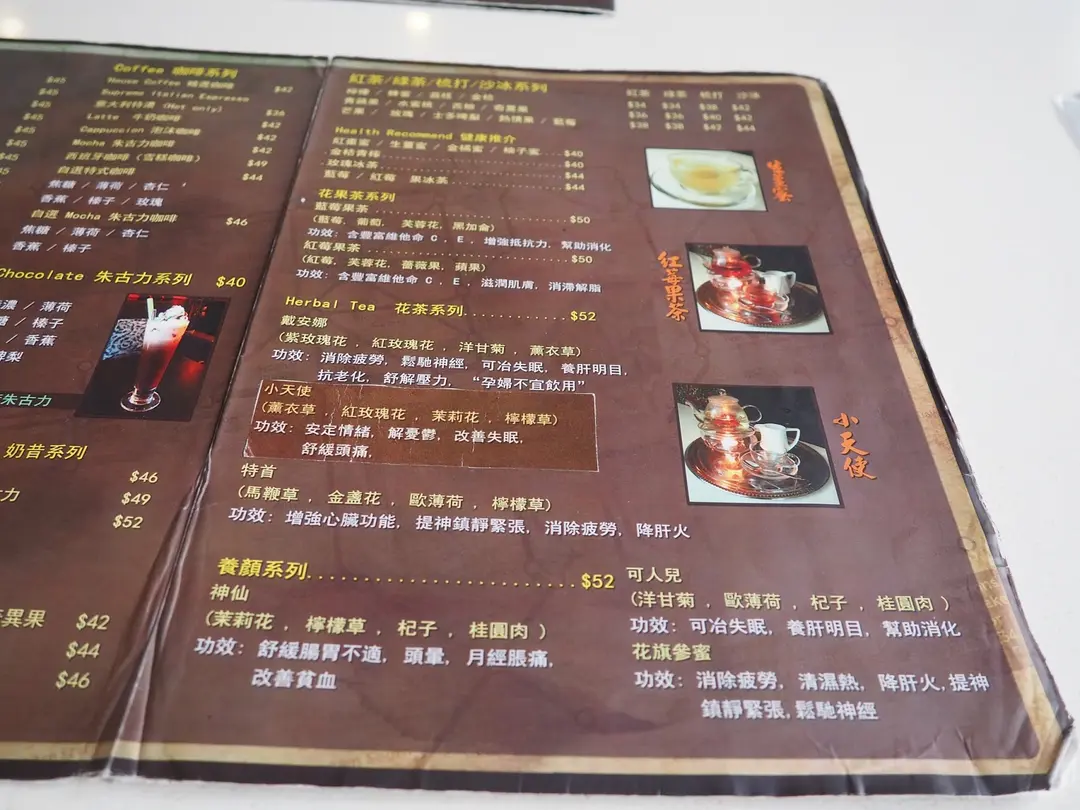 Coffee 咖啡系列
$45
House Coffee 精選咖啡
$42
$45
Supremo Italian Espresso
$45
意大利特濃 (Hot only)
$36
$45
Latte 牛奶咖啡
$42
$45
Cappuccion 泡沫咖啡
$42
$45
Mocha 朱古力咖啡
$42
西班牙咖啡 (雪糕咖啡)
$49
自選特式咖啡
$44
焦糖 / 薄荷 / 杏仁
香蕉 / 榛子 / 玫瑰
自選 Mocha 朱古力咖啡
$46
焦糖 / 薄荷 / 杏仁
香蕉 / 榛子
Chocolate 朱古力系列 $40
濃 / 薄荷
糖 / 榛子
/ 香蕉
啤梨
朱古力
奶昔系列
$46
力 $49
$52
異果 $42
$44
$46
紅茶/綠茶/梳打/沙冰系列
紅茶 綠茶 梳打 沙冰
檸檬 / 蜂蜜 / 荔枝 / 金桔
$34 $34 $38 $42
青蘋果 / 水蜜桃 / 西柚 / 奇異果
$36 $36 $40 $42
芒果 / 玫瑰 / 士多啤梨 / 熱情果 / 藍莓
$38 $38 $42 $44
Health Recommend 健康推介
紅棗蜜 / 生薑蜜 / 金橘蜜 / 柚子蜜 ...$40
金桔青檸......$40
玫瑰冰茶......$44
藍莓 / 紅莓 果冰茶......$44
花果茶系列
藍莓果茶......$50
(藍莓, 葡萄, 芙蓉花, 黑加侖)
功效: 含豐富維他命 C . E , 增強抵抗力, 幫助消化
紅莓果茶......$50
(紅莓, 芙蓉花, 薔薇果, 蘋果)
功效: 含豐富維他命 C . E , 滋潤肌膚, 消滯解脂
Herbal Tea 花茶系列............$52
戴安娜
(紫玫瑰花 , 紅玫瑰花 , 洋甘菊 , 薰衣草)
功效: 消除疲勞, 鬆馳神經, 可治失眠, 養肝明目,
抗老化, 舒解壓力, “孕婦不宜飲用”
小天使
(薰衣草 , 紅玫瑰花 , 茉莉花 , 檸檬草)
功效: 安定情緒, 解憂鬱, 改善失眠,
舒緩頭痛,
特首
(馬鞭草 , 金盞花 , 歐薄荷 , 檸檬草)
功效: 增強心臟功能, 提神鎮靜緊張, 消除疲勞, 降肝火
養顏系列........................$52
神仙
(茉莉花 , 檸檬草 , 杞子 , 桂圓肉 )
功效: 舒緩腸胃不適, 頭暈, 月經脹痛,
改善貧血
可人兒
(洋甘菊 , 歐薄荷 , 杞子 , 桂圓肉 )
功效: 可治失眠, 養肝明目, 幫助消化
花旗參蜜
功效: 消除疲勞, 清濕熱, 降肝火,提神
鎮靜緊張,鬆馳神經
生薑蜜
紅莓果茶
小天使